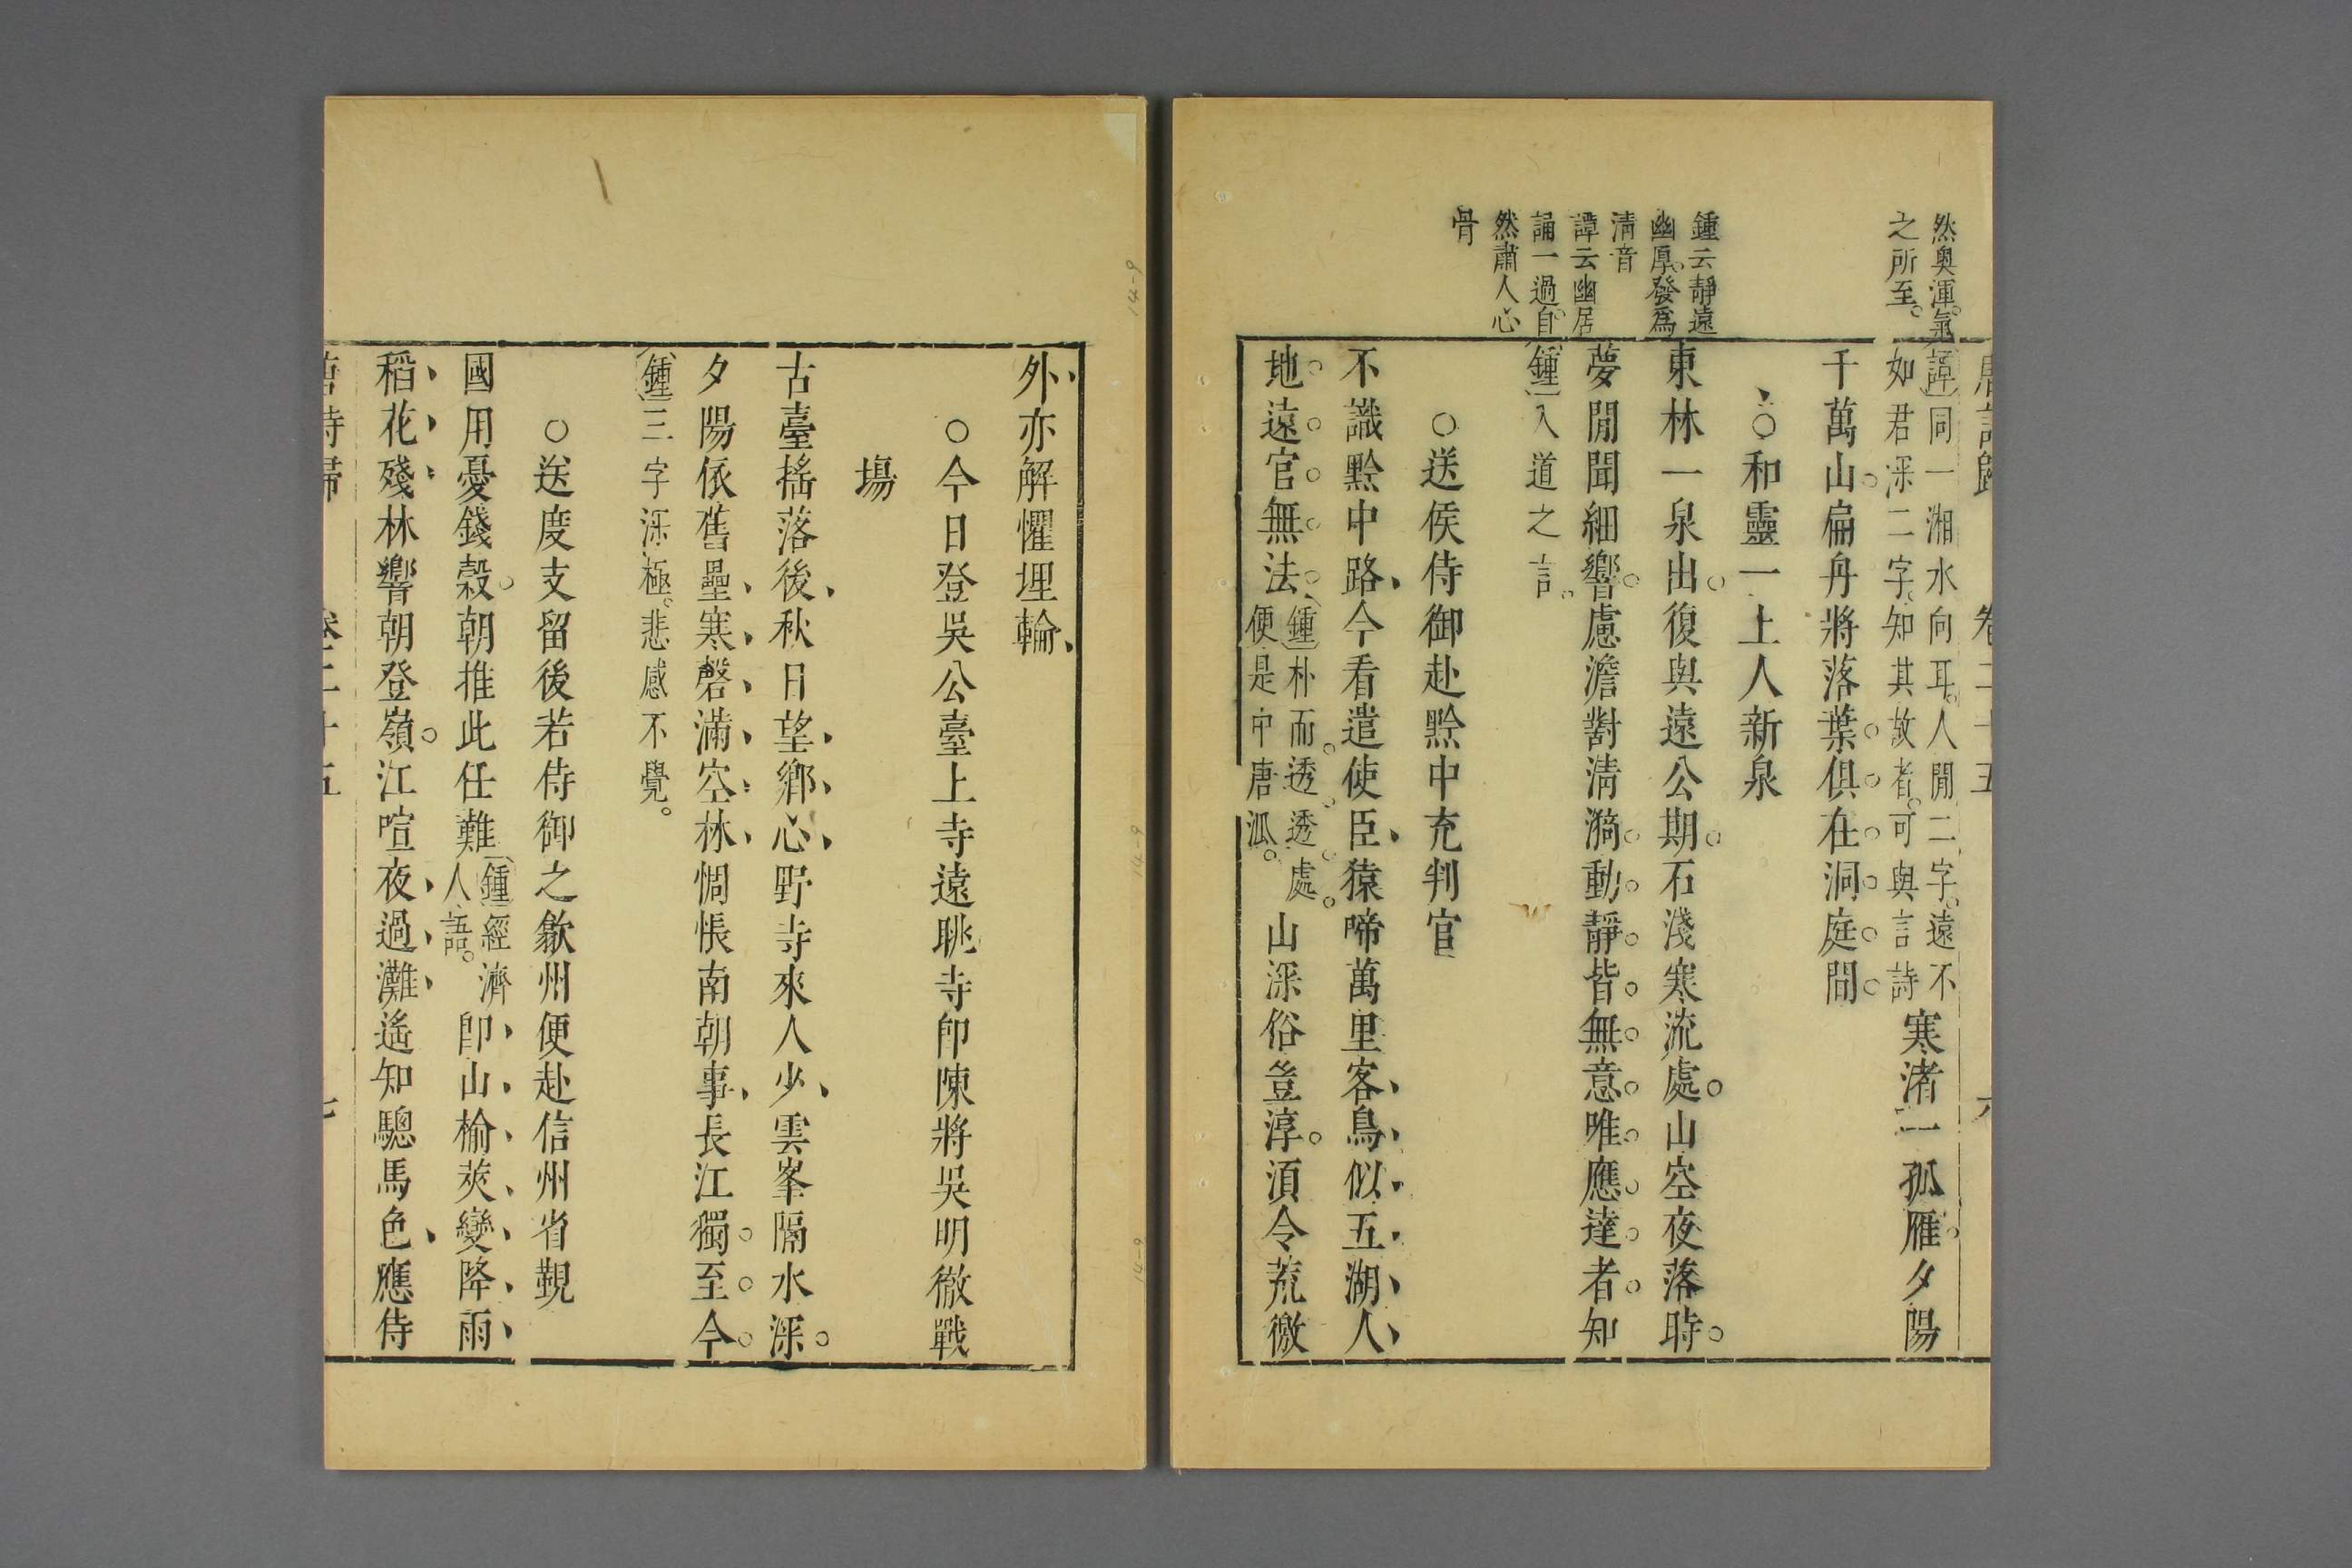 唐詩歸　卷二十五　六
然奧渾氣
之所至
鍾云靜遠
幽厚發為
清音
譚云幽居
誦一過自
然肅人心
骨
譚同一湘水向耳人閒二字遠不
如君深二字知其故者可與言詩
寒渚一孤雁夕陽
千萬山扁舟將落葉俱在洞庭間
○和靈一上人新泉
東林一泉出復與遠公期石淺寒流處山空夜落時
夢閒聞細響慮澹對清漪動靜皆無意唯應達者知
鍾入道之言
○送侯侍御赴黔中充判官
不識黔中路今看遣使臣猿啼萬里客鳥似五湖人
地遠官無法
鍾朴而透透處
便是中唐派
山深俗豈淳須令荒徼
外亦解懼埋輪
○今日登吳公臺上寺遠眺寺即陳將吳明徹戰
場
古臺搖落後秋日望鄉心野寺來人少雲峯隔水深
夕陽依舊壘寒磬滿空林惆悵南朝事長江獨至今
鍾三字深極悲感不覺
○送度支留後若侍御之歙州便赴信州省覲
國用憂錢穀朝推此任難
鍾經濟
人語
即山榆莢變降雨
稻花殘林響朝登嶺江喧夜過灘遙知驄馬色應侍
唐詩歸　卷二十五　七